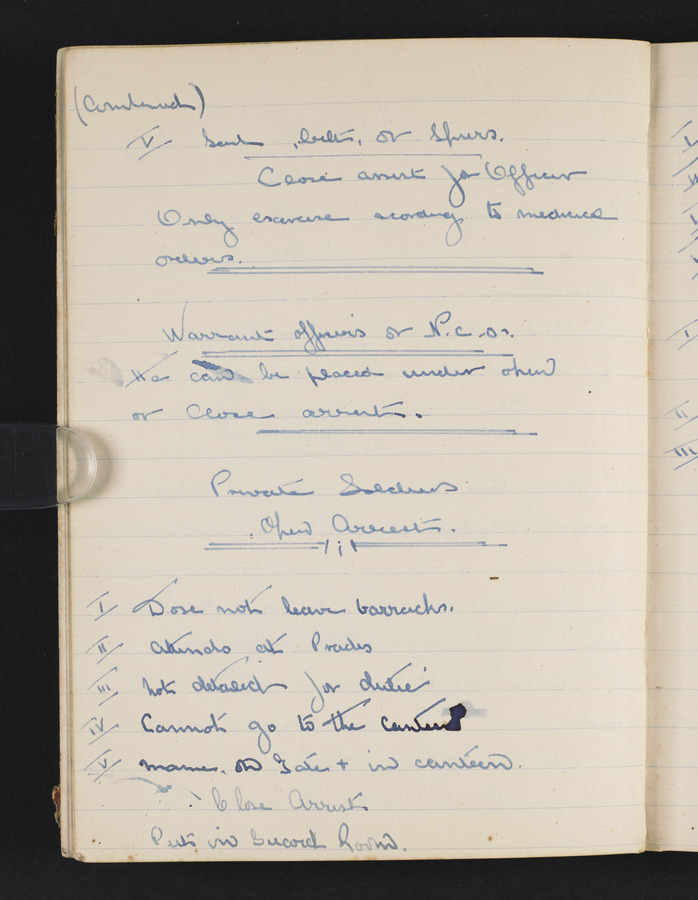 (Continued)
V Sword, belt, or Spurs.
Close arrest for Officer
Only exercise acording to medical
orders.
Warrant officers or N.C.Os.
He can be placed under open
or Close arrest.
Private Soldiers
Open Arrest.
I Dose not leave barracks.
II attends at Prades
III not detailed for dutie
IV Cannot go to the canteen
V name, on Gate + in canteen.
Close Arrest
Puts in Guard Room.
I
II
V
I
II
III